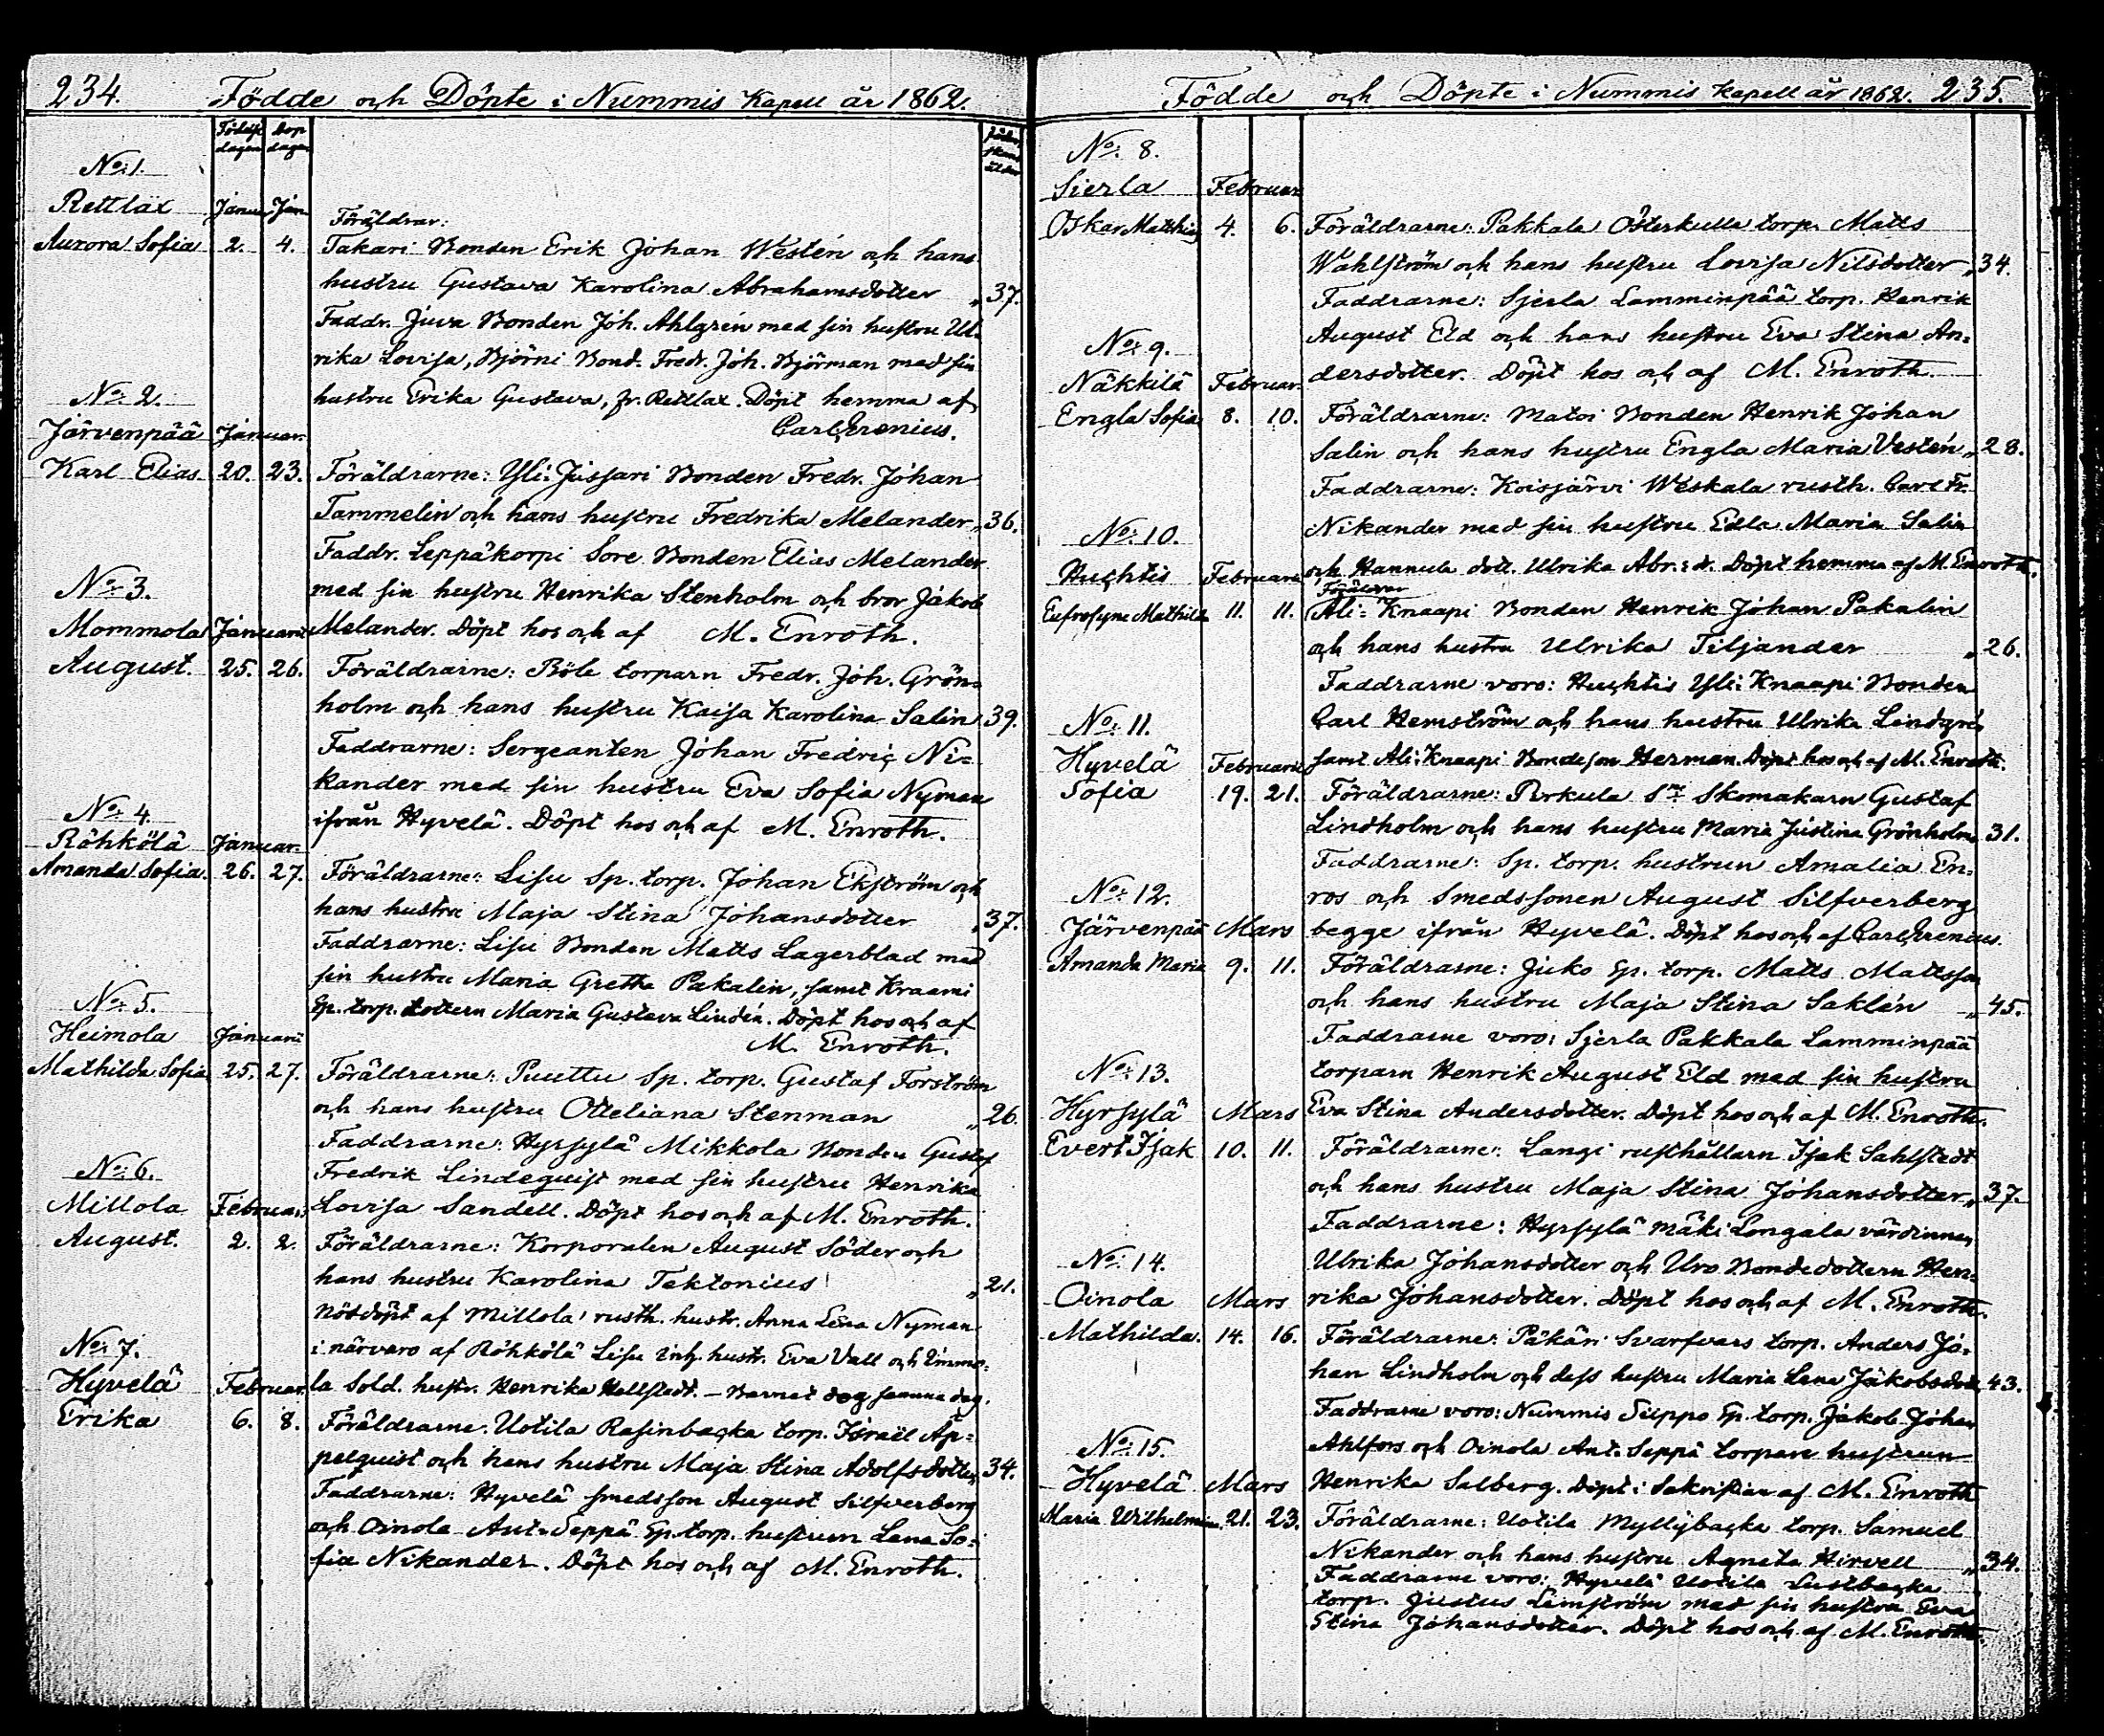 234. Födde och Döpte i Nummis Kapell år 1862.
Födelse dagen Dop dagen
No. 1.
Rettlax Januar Jan.
Föräldrar:
Aurora Sofia 2. 4. Takari Bonden Erik Johan Westén och hans
hustru Gustava Karolina Abrahamsdotter „ 37.
Faddr. Juva Bonden Joh. Ahlgrén med sin hustru Ul-
rika Lovisa, Björni Bond. Fredr. Joh. Björman med sin
No. 2. hustru Erika Gustava, fr. Rettlax. Döpt hemma af
Järvenpää Januar. Carl Grenius.
Karl Elias. 20. 23. Föräldrarne: Yli-Jussari Bonden Fredr. Johan
Tammelin och hans hustru Fredrika Melander „ 36.
Faddr. Leppäkorpi Sore Bonden Elias Melander
No. 3. med sin hustru Henrika Stenholm och bror Jakob
Mommola Januarii Melander. Döpt hos och af M. Enroth.
August. 25. 26. Föräldrarne: Böle torparn Fredr. Joh. Grön-
holm och hans hustru Kaisa Karolina Salin 39.
Faddrarne: Sergeanten Johan Fredric Ni-
kander med sin hustru Eva Sofia Nyman
No. 4. ifrån Hyvelä. Döpt hos och af M. Enroth.
Röhkölä Januar.
Amanda Sofia. 26. 27. Föräldrarne: Lisu Sp. torp. Johan Ekström och
hans hustru Maja Stina Johansdotter „ 37.
Faddrarne: Lisu Bonden Matts Lagerblad med
sin hustru Maria Gretha Pakalin, samt Kraami
No. 5. Sp. torp. dottern Maria Gustava Lindén. Döpt hos och af
Heimola Januarii M. Enroth.
Mathilda Sofia 25. 27. Föräldrarne: Puuttu Sp. torp. Gustaf Forström
och hans hustru Otteliana Stenman „ 26.
Faddrarne: Hyrsylä Mikkola Bonden Gustaf
No. 6. Fredrik Lindequist med sin hustru Henrika
Millola Februar. Lovisa Sandell. Döpt hos och af M. Enroth.
August. 2. 2. Föräldrarne: Korporalen August Söder och
hans hustru Karolina Tektonius „ 21.
Nöddöpt af Millola rusth. hustr. Anna Lena Nyman
No. 7. i närvaro af Röhkölä Lisu inh. hustr. Eva Vall och Immo-
Hyvelä Februar. la Sold. hustr. Henrika Hellstedt. – Barnet dog samma dag.
Erika 6. 8. Föräldrarne. Uotila Rasinbacka torp. Israël Ap-
pelquist och hans hustru Maja Stina Adolfsdotter 34.
Faddrarne: Hyvelä smedsson August Silfverberg
och Oinola Ant-Seppä Sp. torp. hustrun Lena So-
fia Nikander. Döpt hos och af M. Enroth.
Födde och Döpte i Nummis Kapell år 1862. 235.
No. 8.
Sierla Februar
Oskar Matthias 4. 6. Föräldrarne: Pakkala Österkulla torp. Matts
Wahlström och hans hustru Lovisa Nilsdotter „ 34.
Faddrarne: Sjerla Lamminpää torp. Henrik
No. 9. August Eld och hans hustru Eva Stina An-
Näkkilä Februar. dersdotter. Döpt hos och af M. Enroth.
Engla Sofia 8. 10. Föräldrarne: Matoi Bonden Henrik Johan
Salin och hans hustru Engla Maria Vestén „ 28.
Faddrarne: Koisjärvi Weskala rusth. Carl Fr.
No. 10. Nikander med sin hustru Edla Maria Salin
Huhtis Februarii och Hannula dott. Ulrika Abr:s d. Döpt hemma af M. Enroth.
Föräldrar
Eufrosyne Mathilda 11. 11. Ali-Knaapi Bonden Henrik Johan Pakalin
och hans hustru Ulrika Tiljander „ 26.
Faddrarne voro: Huhtis Yli-Knaapi Bonden
No. 11. Carl Hemström och hans hustru Ulrika Lindgrén
Hyvelä Februarii samt Ali-Knaapi Bondeson Herman. Döpt hos och af M. Enroth.
Sofia 19. 21. Föräldrarne: Purkula Sn. Skomakarn Gustaf
Lindholm och hans hustru Maria Justina Grönholm 31.
Faddrarne: Sp. torp. hustrun Amalia En-
No. 12. ros och Smedssonen August Silfverberg
Järvenpää Mars begge ifrån Hyvelä. Döpt hos och af Carl Grenius.
Amanda Maria 9. 11. Föräldrarne: Juko Sp. torp. Matts Mattsson
och hans hustru Maja Stina Saklén „ 45.
Faddrarne voro: Sjerla Pakkala Lamminpää
No. 13. torparn Henrik August Eld med sin hustru
Hyrsylä Mars Eva Stina Andersdotter. Döpt hos och af M. Enroth.
Evert Isak 10. 11. Föräldrarne: Langi rusthållarn Isak Sahlstedt
och hans hustru Maja Stina Johansdotter „ 37.
Faddrarne: Hyrsylä Mäki Longala värdinnan
No. 14. Ulrika Johansdotter och Uro Bondedottern Hen-
Oinola Mars rika Johansdotter. Döpt hos och af M. Enroth.
Mathilda. 14. 16. Föräldrarne: Päkäri Svarfvars torp. Anders Jo-
han Lindholm och dess hustru Maria Lena Jakobsdott. 43.
Faddrarne voro: Nummis Seppo Sp. torp. Jakob Johan
No. 15. Ahlfors och Oinola Ant-Seppä torpare hustrun
Hyvelä Mars Henrika Salberg. Döpt i Sakristian af M. Enroth
Maria Wilhelmina 21. 23. Föräldrarne: Uotila Myllybacka torp. Samuel
Nikander och hans hustru Agneta Hirvell „ 34.
Faddrarne voro: Hyvelä Uotila Lustbacka
torp. Justus Lemström med sin hustru Eva
Stina Johansdotter. Döpt hos och af M. Enroth.